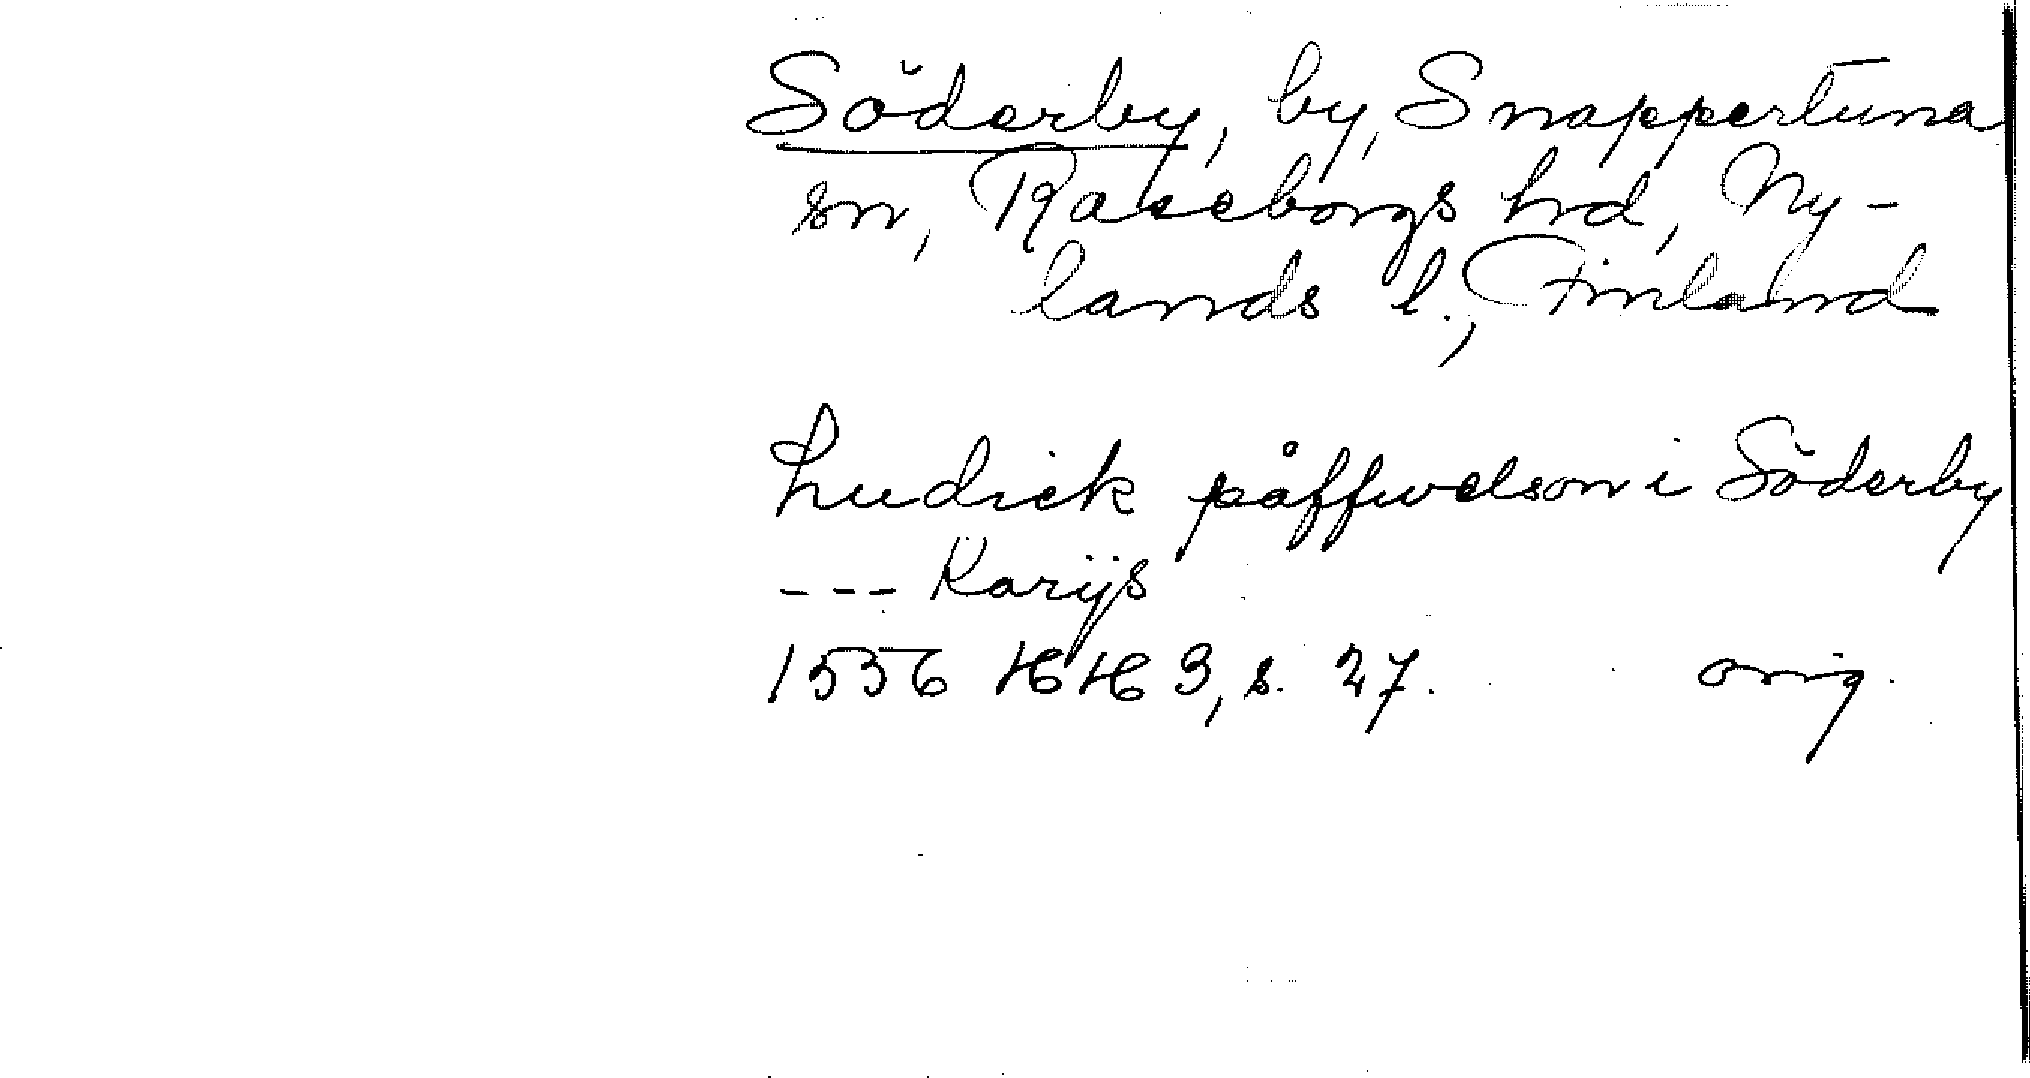 Söderby, by, Snappertuna
sn, Raseborgs hrd, Ny-
lands l., Finland
Ludick påffwelson i Söderby
--- Karijs
1556 HH 3, s. 27. orig.